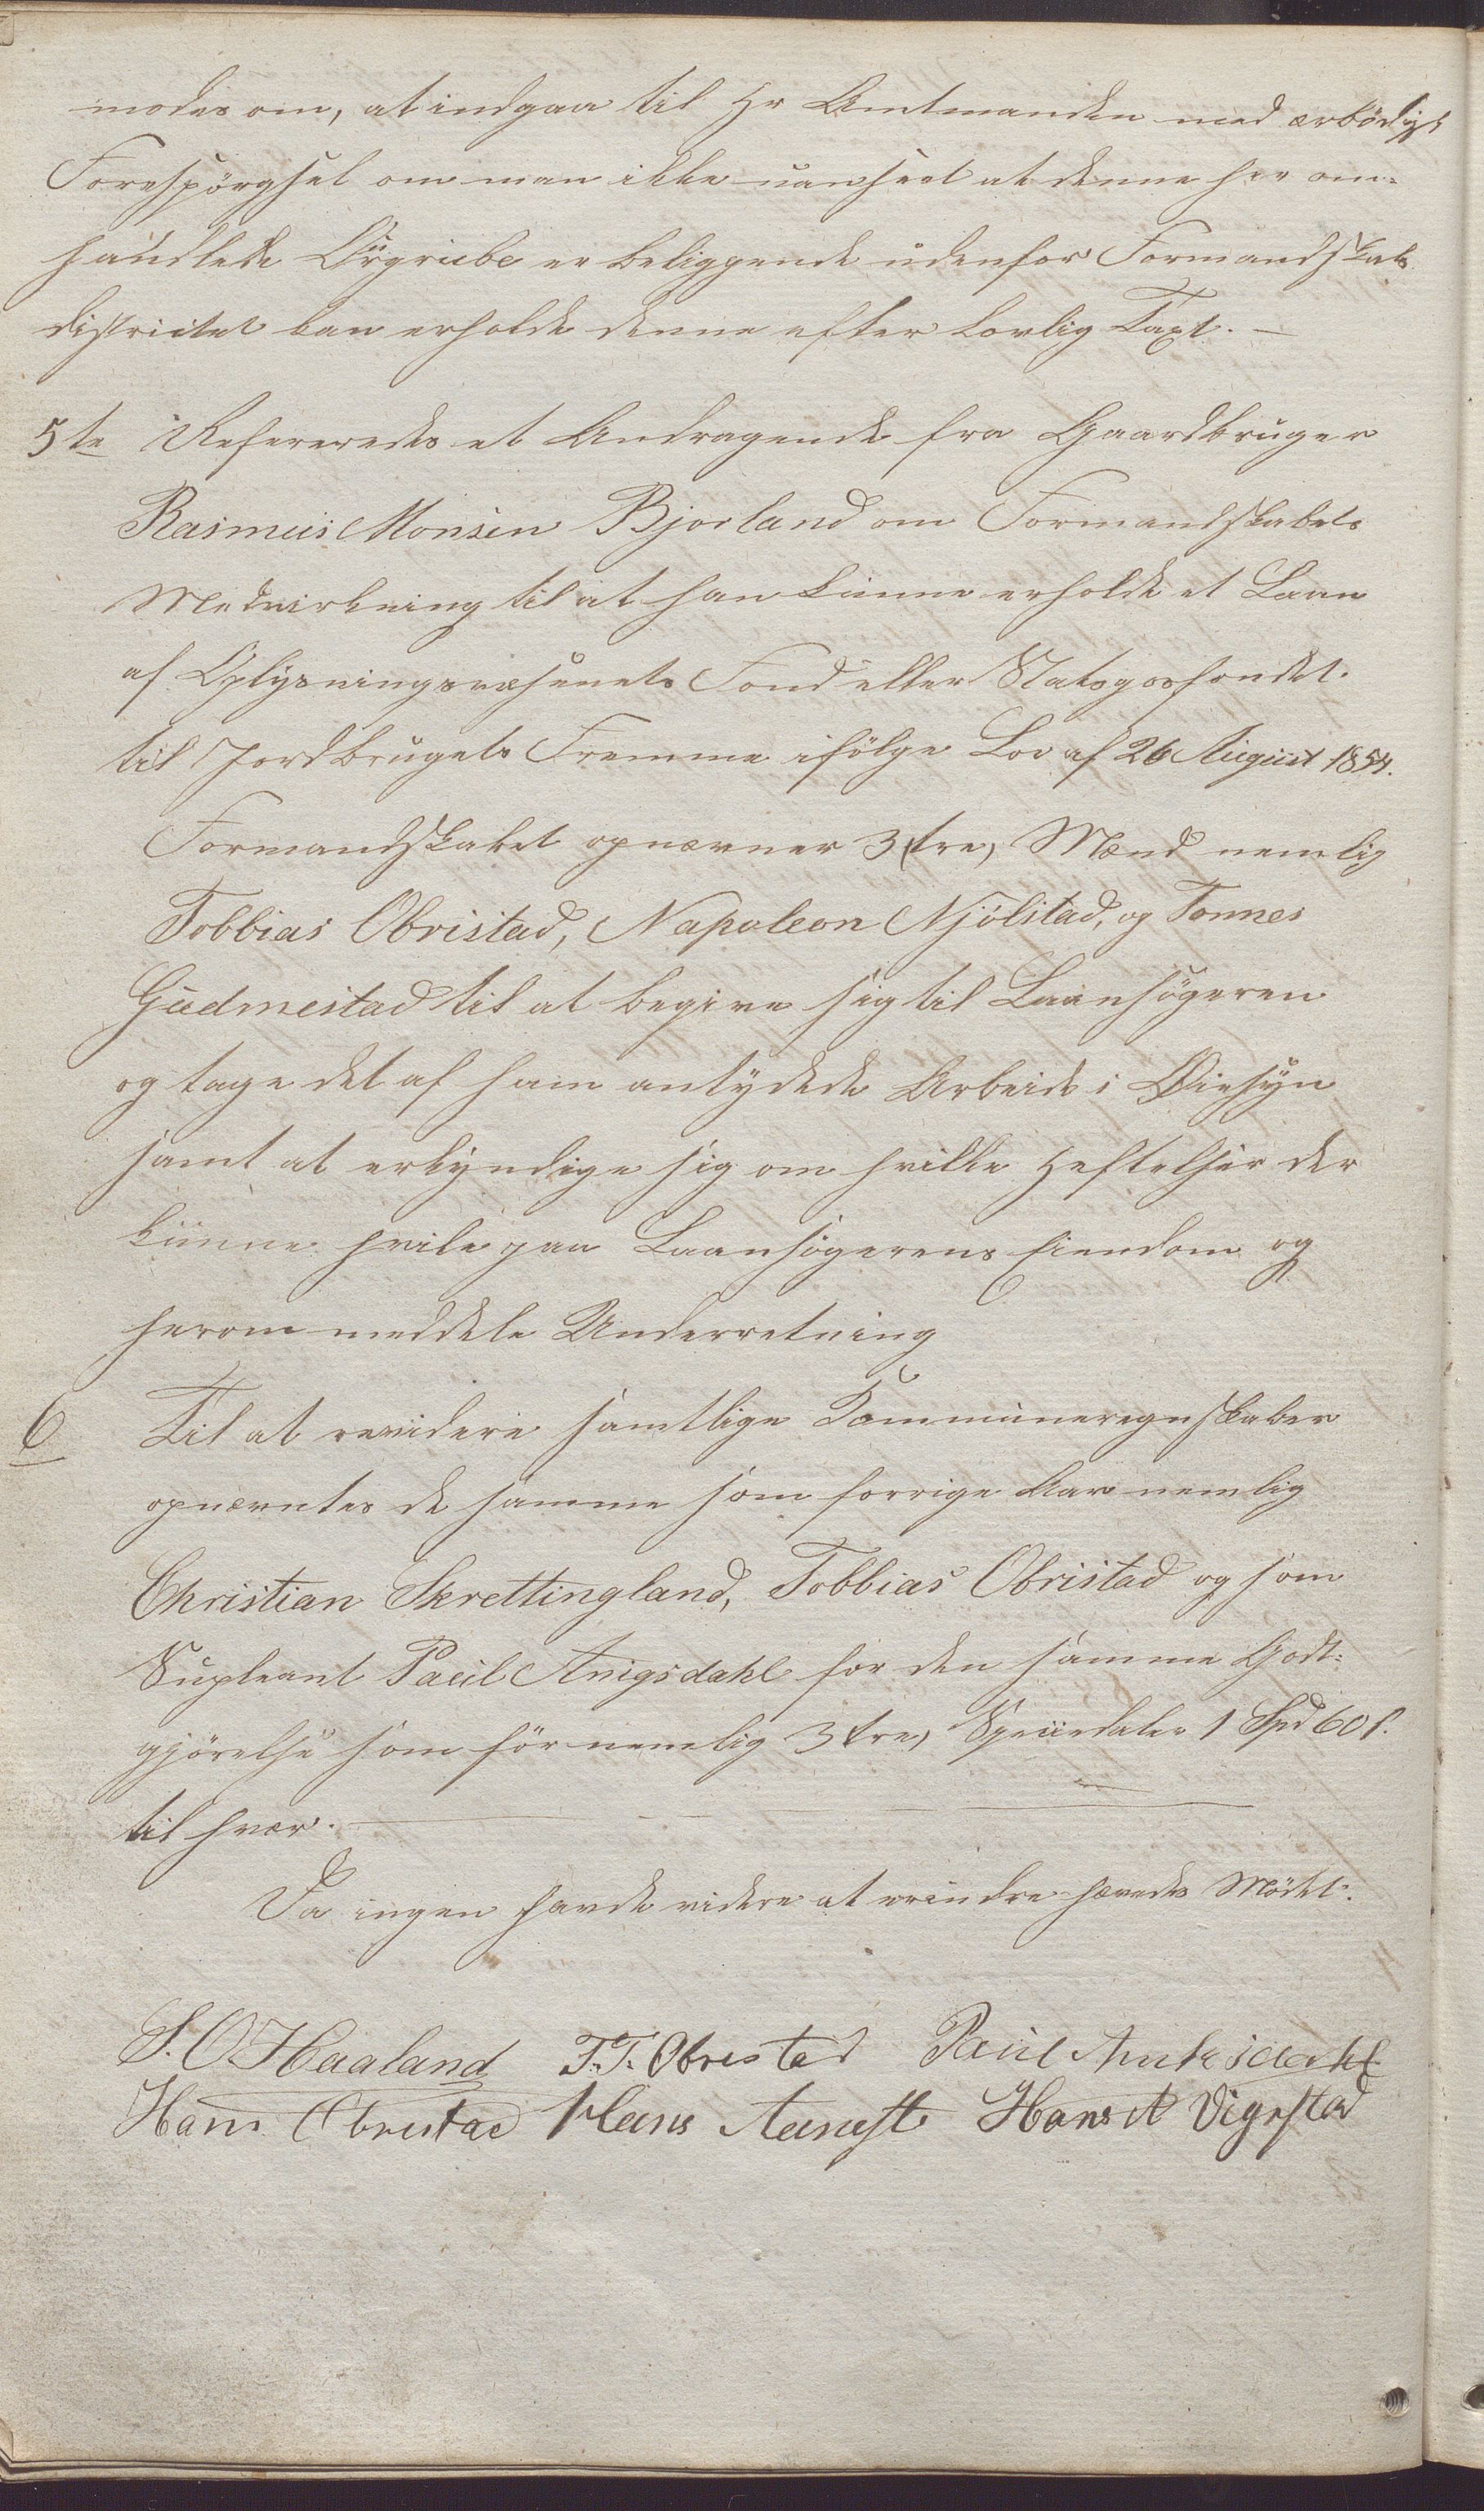 modes om, at indgaa til Hr Amtmanden med ærbödigst
Forespörgsel om man ikke uanseet at denne her om-
handlede Örgrube er beliggende udenfor Formandskabs
districtet kan erholde denne efter Lovlig Taxt. —
5te Refereredes et Andragende fra Gaardbruger
Rasmus Monsen Bjorland om Formandskabets
Medvirkning til at han kunne erholde et Laan
af Oplysningsvæsenets Fond eller Statsgosfondet
til Jordbrugets Fremme ifölge Lov af 26 August 1854.
Formandskabet opnævner 3 (tre) Mænd nemlig
Tobbias Obristad, Napoleon Njölstad, og Tonnes
Gudmestad til at begive sig til Laansögeren
og tage det af ham antydede Arbeide i Øiesyn
samt at erkyndige sig om hvilke Heftelser der
kunne hvile paa Laansögerens Eiendom og
herom meddele Underretning
6 Til at revidere samtlige Communeregnskaber
opnævntes de samme som forrige Aar nemlig
Christian Skrettingland, Tobbias Obristad og som
Supleant Paul Anigsdahl for den samme Godt-
gjörelse som för nemlig 3 (tre) Speciedaler 1 Spd 60 s.
til hver.
Da ingen havde videre at erindre hævedes Mödet.
S. O. Haaland T. T. Obrestad Paul Aniksdahl
Hans Obrestad Hans Aanest Hans A Vigrestad